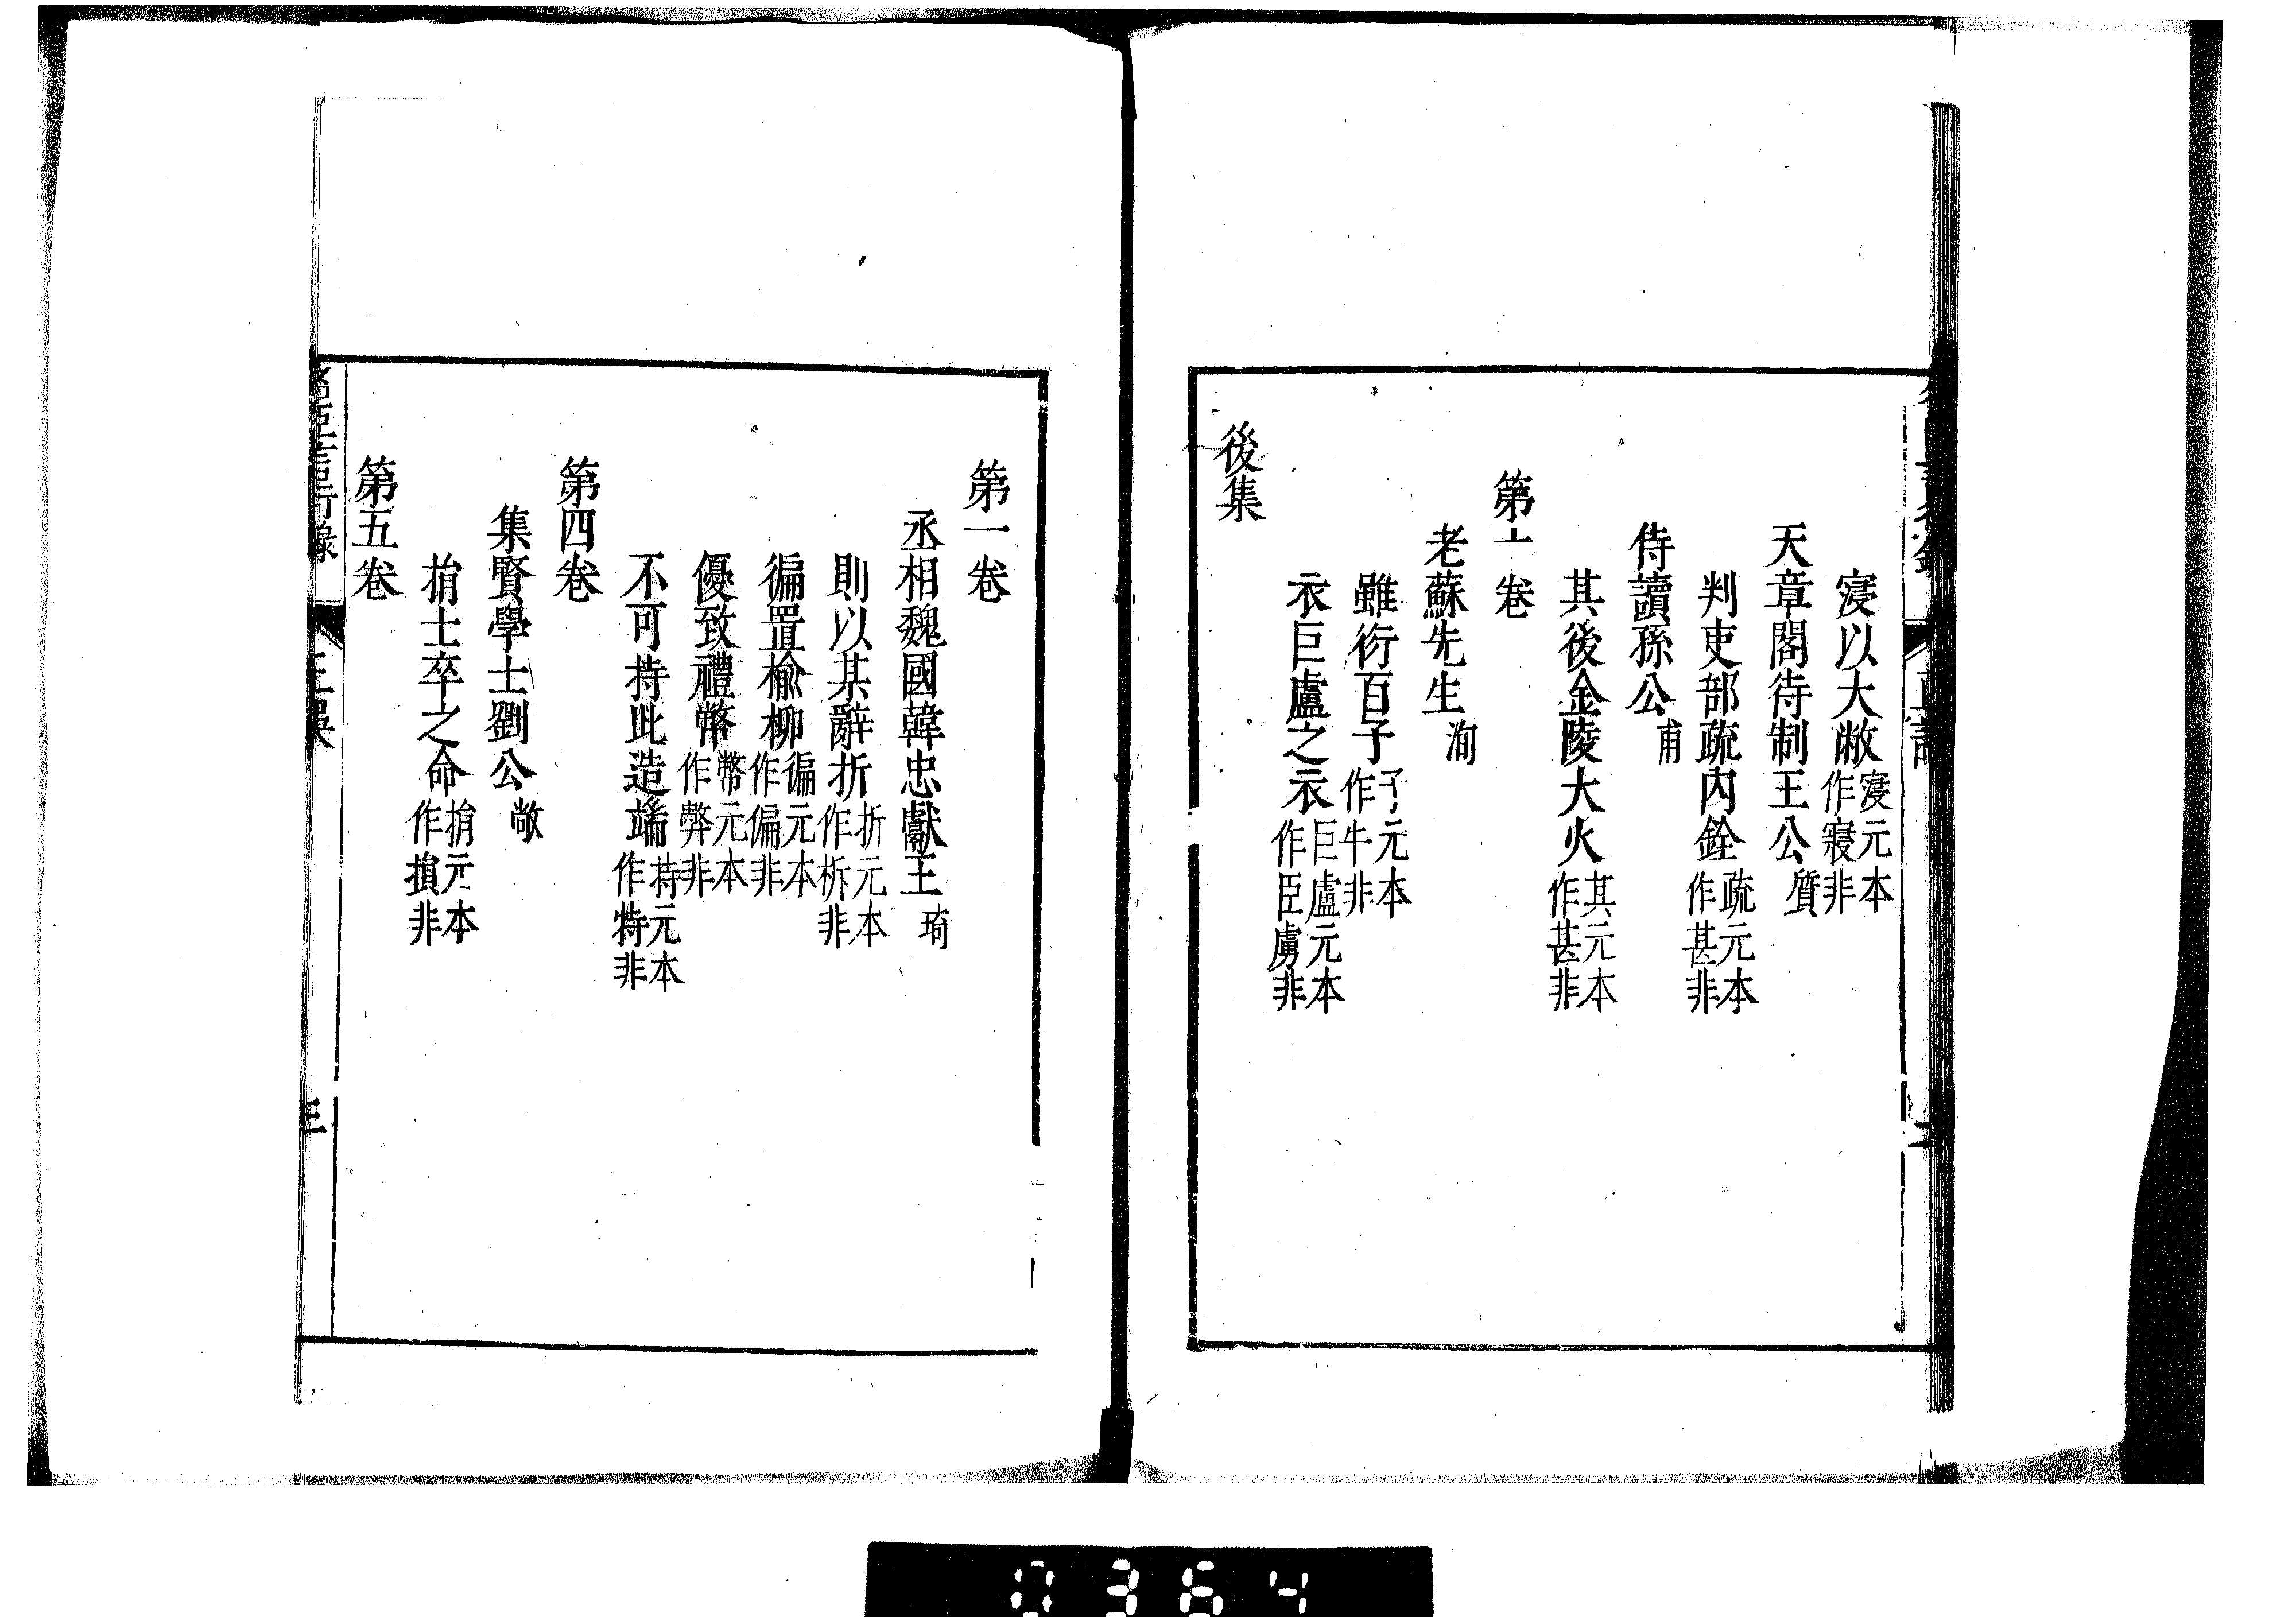 寖以大敝寖元本作寢非
天章閣待制王公質
判吏部䟽內銓䟽元本作甚非
侍讀孫公甫
其後金陵大火其元本作甚非
第十卷
老蘇先生洵
雖衍百子子元本作牛非
衣巨盧之衣巨盧元本作臣虜非
後集
第一卷
丞相魏國韓忠獻王琦
則以某辭折折元本作柝非
徧置榆柳徧元本作偏非
優致禮幣幣元本作弊非
不可持此造端持元本作特非
第四卷
集賢學士劉公敞
捐士卒之命捐元本作損非
第五卷
名臣言行錄
正誤
三
0364